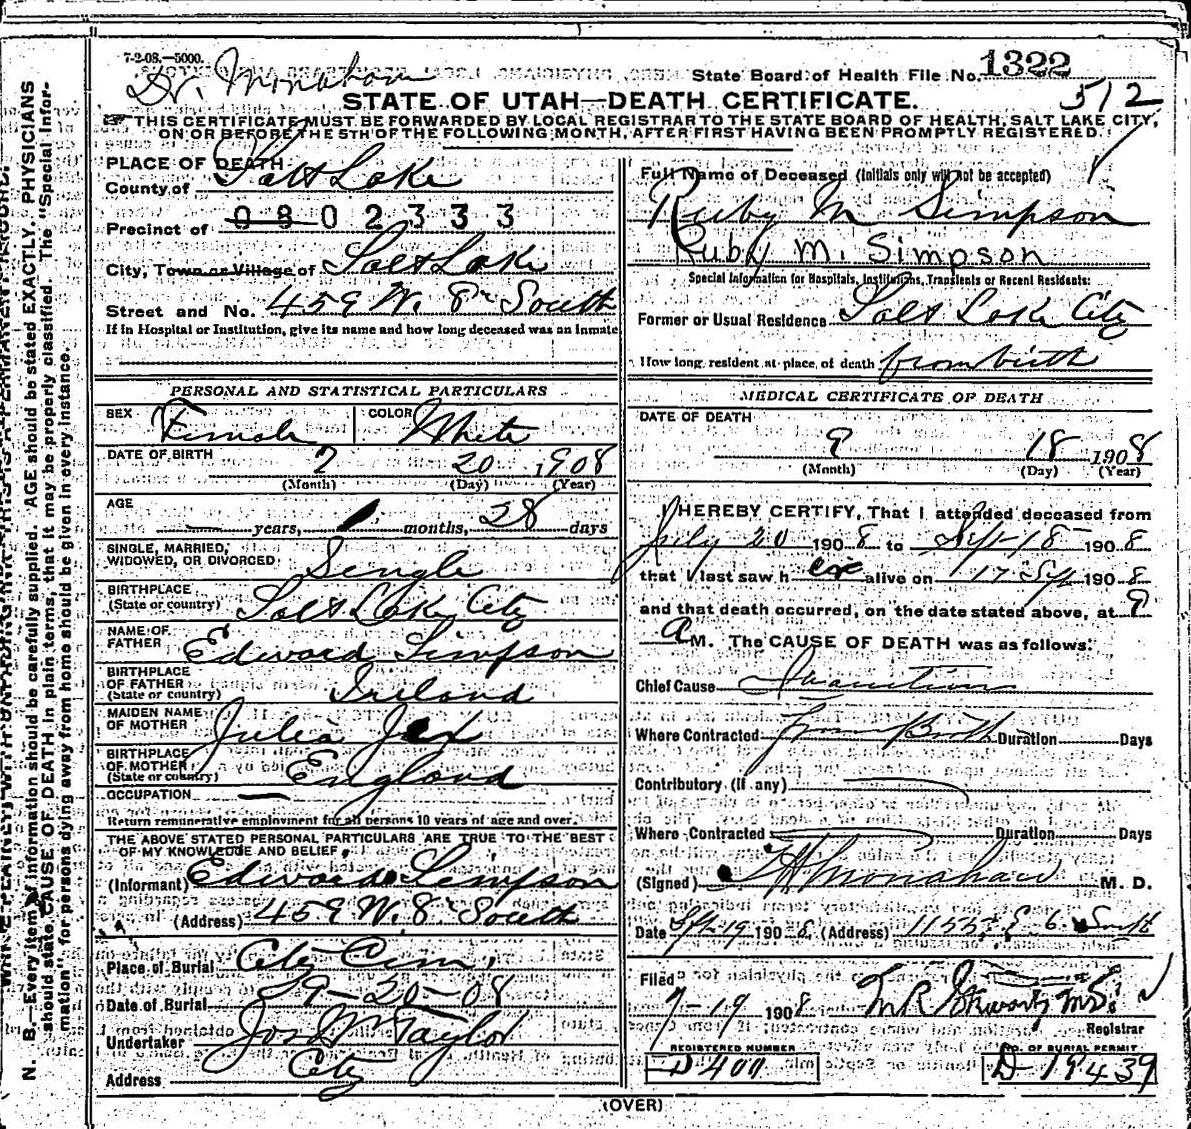 7-2-08.—5000.
Dr. Monahan
State Board of Health File No. 1322
STATE OF UTAH—DEATH CERTIFICATE.
512
THIS CERTIFICATE MUST BE FORWARDED BY LOCAL REGISTRAR TO THE STATE BOARD OF HEALTH, SALT LAKE CITY,
ON OR BEFORE THE 5TH OF THE FOLLOWING MONTH, AFTER FIRST HAVING BEEN PROMPTLY REGISTERED.
PLACE OF DEATH
County of Salt Lake
Precinct of 0802333
City, Town or Village of Salt Lake
Street and No. 459 W. 8th South
If in Hospital or Institution, give its name and how long deceased was an inmate
PERSONAL AND STATISTICAL PARTICULARS
SEX Female COLOR White
DATE OF BIRTH 7 20 1908
(Month) (Day) (Year)
AGE — years, 1 months, 28 days
SINGLE, MARRIED,
WIDOWED, OR DIVORCED Single
BIRTHPLACE
(State or country) Salt Lake City
NAME OF
FATHER Edward Simpson
BIRTHPLACE
OF FATHER
(State or country) Ireland
MAIDEN NAME
OF MOTHER Julia Jex
BIRTHPLACE
OF MOTHER
(State or country) England
OCCUPATION —
Return remunerative employment for all persons 10 years of age and over.
THE ABOVE STATED PERSONAL PARTICULARS ARE TRUE TO THE BEST
OF MY KNOWLEDGE AND BELIEF.
(Informant) Edward Simpson
(Address) 459 W. 8th South
Place of Burial City Cem.
Date of Burial 9-20-08
Undertaker Jos Wm Taylor
Address City
Full Name of Deceased (Initials only will not be accepted)
Ruby M Simpson
Ruby M. Simpson
Special Information for Hospitals, Institutions, Transients or Recent Residents:
Former or Usual Residence Salt Lake City
How long resident at place of death from birth
MEDICAL CERTIFICATE OF DEATH
DATE OF DEATH
9 18 1908
(Month) (Day) (Year)
I HEREBY CERTIFY, That I attended deceased from
July 20 1908 to Sept 18 1908
that I last saw her alive on 17 Sep 1908
and that death occurred, on the date stated above, at 9
A M. The CAUSE OF DEATH was as follows:
Chief Cause Inanition
Where Contracted From Birth Duration Days
Contributory (if any)
Where Contracted Duration Days
(Signed) Monahan M. D.
Date Sept 19 1908, (Address) E. 6. South
Filed 9-19 1908
Registrar
REGISTERED NUMBER NO. OF BURIAL PERMIT
D 400 D-19439
(OVER)
N. B.—Every item of information should be carefully supplied. AGE should be stated EXACTLY. PHYSICIANS
should state CAUSE OF DEATH in plain terms, that it may be properly classified. The "Special Infor-
mation" for persons dying away from home should be given in every instance.